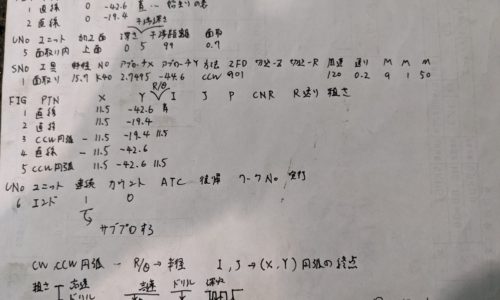 1 直線 0 -42.6
2 直線 0 -19.4
UNo ユニット 加工面 深さ 干渉距離 面取
5 面取り内 上面 0 5 99 0.7
SNo 工具 NO アプローチX アプローチY 方法 ZFD 周速 送り M M M
1 面取り 15.9 K40 2.7495 -44.6 CCW G01 120 0.2 9 1 50
R/θ
FIG PTN X Y I J P CNR R送り 粗さ
1 直線 11.5 -42.6
2 直線 11.5 -19.4
3 CCW円弧 -11.5 -19.4 11.5
4 直線 -11.5 -42.6
5 CCW円弧 11.5 -42.6 11.5
UNo ユニット 連続 カウント ATC 復帰 ワークNo 実行
6 エンド 1 0
サブプロする
CW, CCW円弧 - R/θ → 半径 I, J → (X, Y) 円弧の終点
粗さ ドリル ドリル